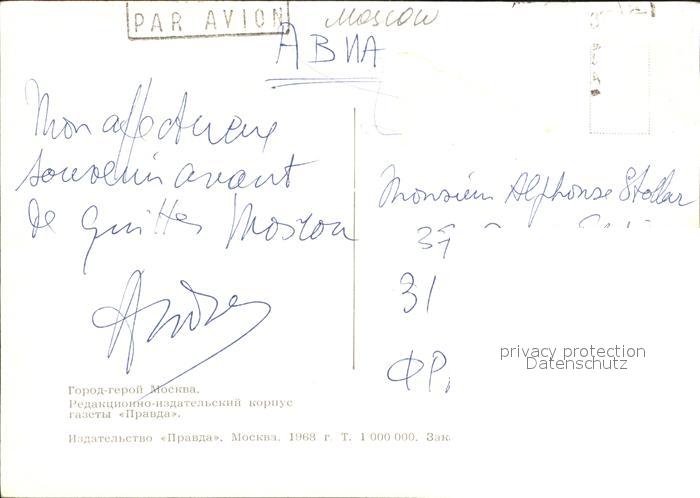 PAR AVION
Moscow
АВИА
Mon affectueux
souvenir avant
de quitter Moscou
André
Monsieur Alphonse Stoklar
37
31
ФР.
privacy protection
Datenschutz
Город-герой Москва.
Редакционно-издательский корпус
газеты «Правда».
Издательство «Правда». Москва. 1968 г. Т. 1 000 000. Зак.